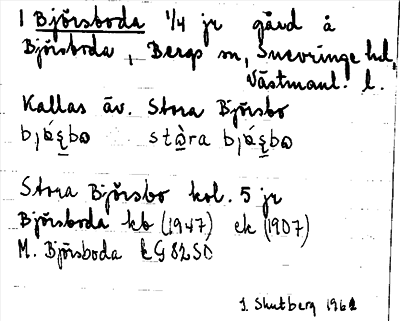 1 Björsboda 1/4 jr gård å
Björsboda, Bergs sn, Snevringe hd,
Västmanl. l.
Kallas äv. Stora Björsbo
stòra
Stora Björsbo kol. 5 jr
Björsboda kb (1947) ek (1907)
M. Björsboda LG 82SO
J. Skutberg 1962